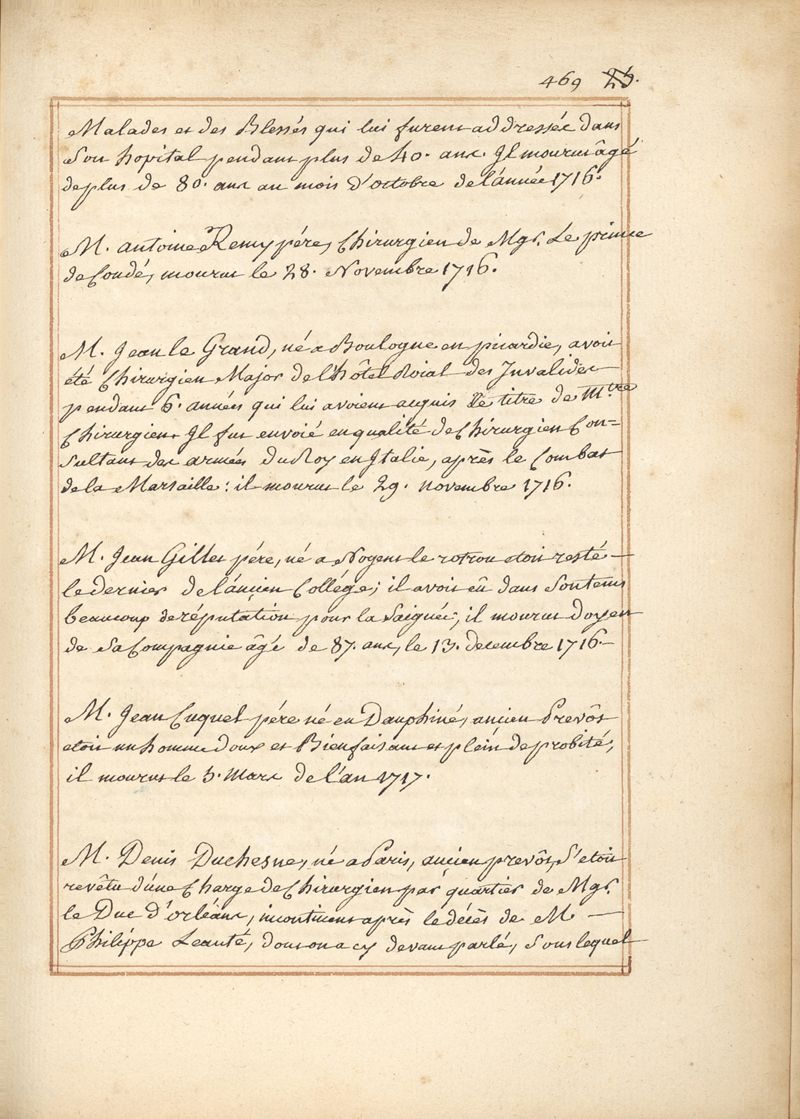 469 25.
Malades et des Blessés qui lui furent addressés dans
Son hopital pendant plus de 40. ans. Il mourut âgé
de plus de 80. ans au mois d'octobre de l'année 1716.
M. antoine Remy pére, Chirurgien de Mgr. Le prince
de Condé, mourut le 28. Novembre 1716.
M. Jean le Grand, né a Boulogne en picardie, avoit
été Chirurgien Major de l'hôtel Roial des Invalides
pendant 6. années qui lui avoient acquis le titre de M.tre
Chirurgien. Il fut envoié en qualité de Chirurgien Con=
sultant des armées du Roy en Italie, après le Combat
de la Marsaille: il mourut le 29. novembre 1716.
M. Jean Gilles pére, né a Nogent le rotrou etoit resté
le dernier de l'áncien Collége; il avoit eû dans Son tems
beaucoup de réputation pour la Saignée; il mourut doyen
de Sa Compagnie âgé de 87. ans, le 13. decembre 1716.
M. Jean Cuquel pére né en Dauphiné, ancien Prevôt
etoit un homme doux et Bienfaisant et plein de probité;
il mourut le 3. Mars de l'an 1717.
M. Denis Duchesne, né a Paris, ancien prevôt, S'etoit
revêtu d'une Charge de Chirurgien par quartier de Mgr.
le Duc d'orléans, incontinent après le décès de M.
Philippe Leauté, dont on a cy devant parlé, Sous lequel